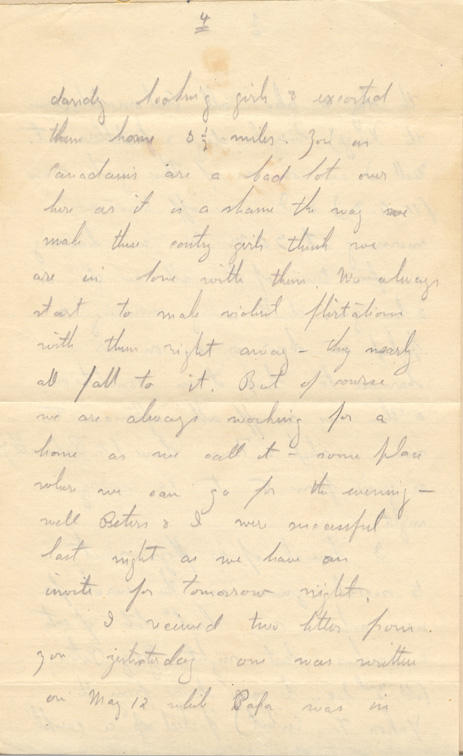 4
dandy looking girls & escorted
them home 3½ miles.
Canadians are a bad lot over
here as it is a shame the way we
make these contry girls think we
are in love with them. We always
start to make violent flirtations
with them right away – they nearly
all fall to it. But of course
we are always working for a
home as we call it – some place
where we can go for the evening –
well Peters & I were successful
last night as we have an
invite for tomorrow night.
I received two letters from
you yestarday one was written
on May 12 while Papa was in